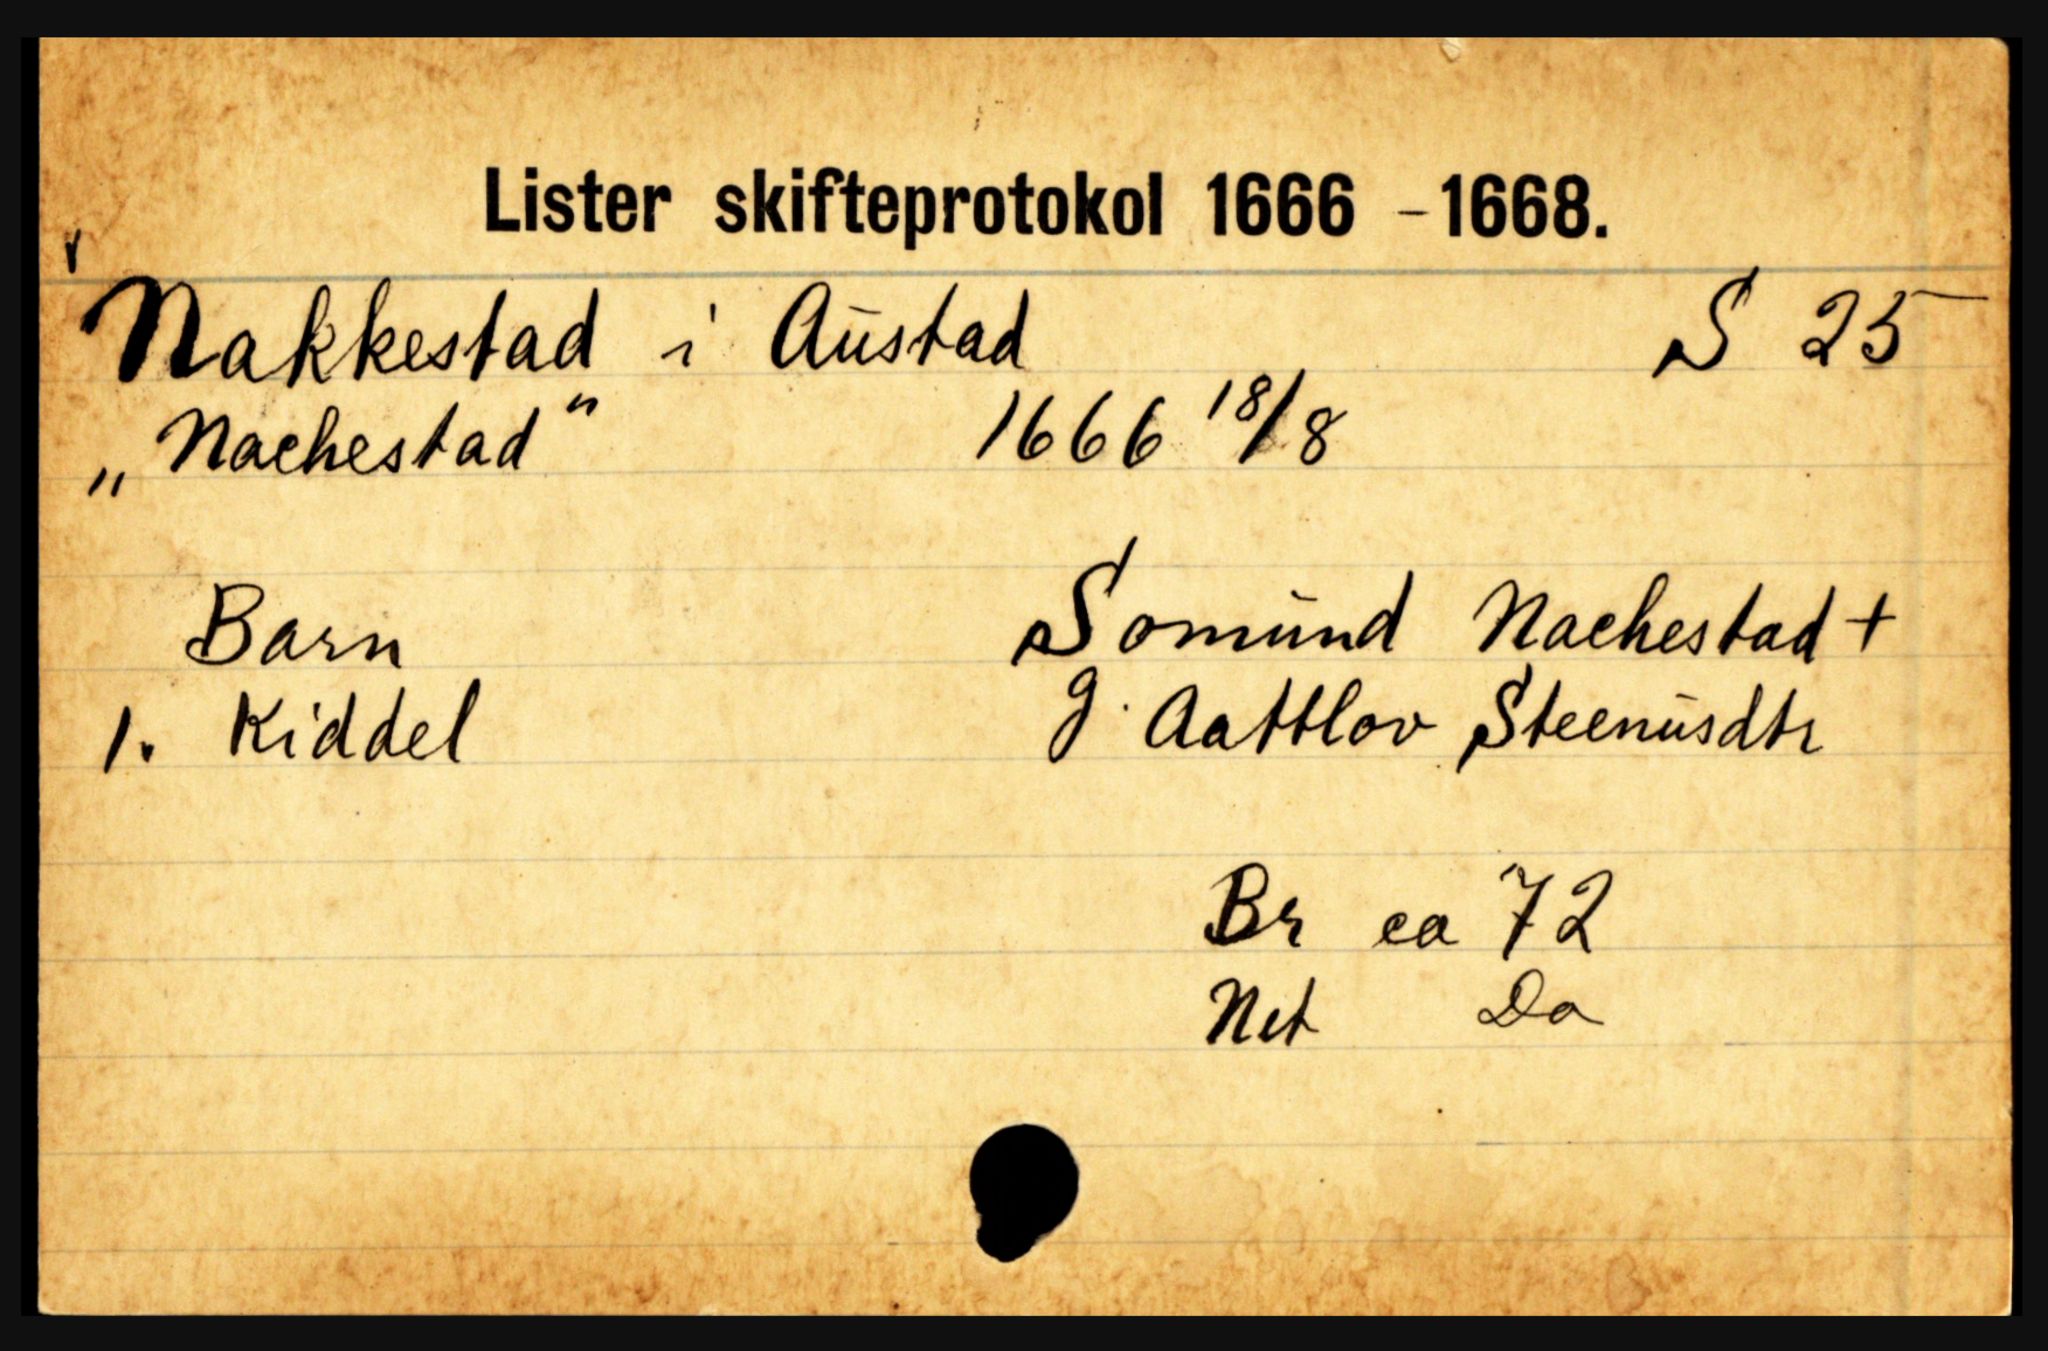 Lister skifteprotokol 1666 - 1668.
Nakkestad i Austad S 25
„Nachestad" 1666 18/8
Barn Somund Nachestad +
1. Kiddel g. Aattlov Steenusdtr
Br ca 72
Net Do